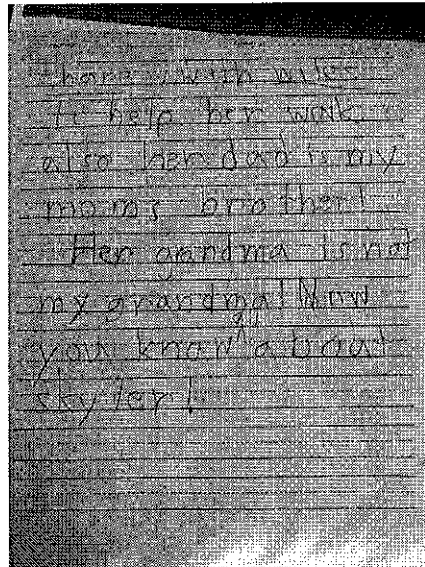 home with wites
to help her work.
also her dad is my
moms brother!
Her grandma is not
my grandma! Now
you know all about
skyler!